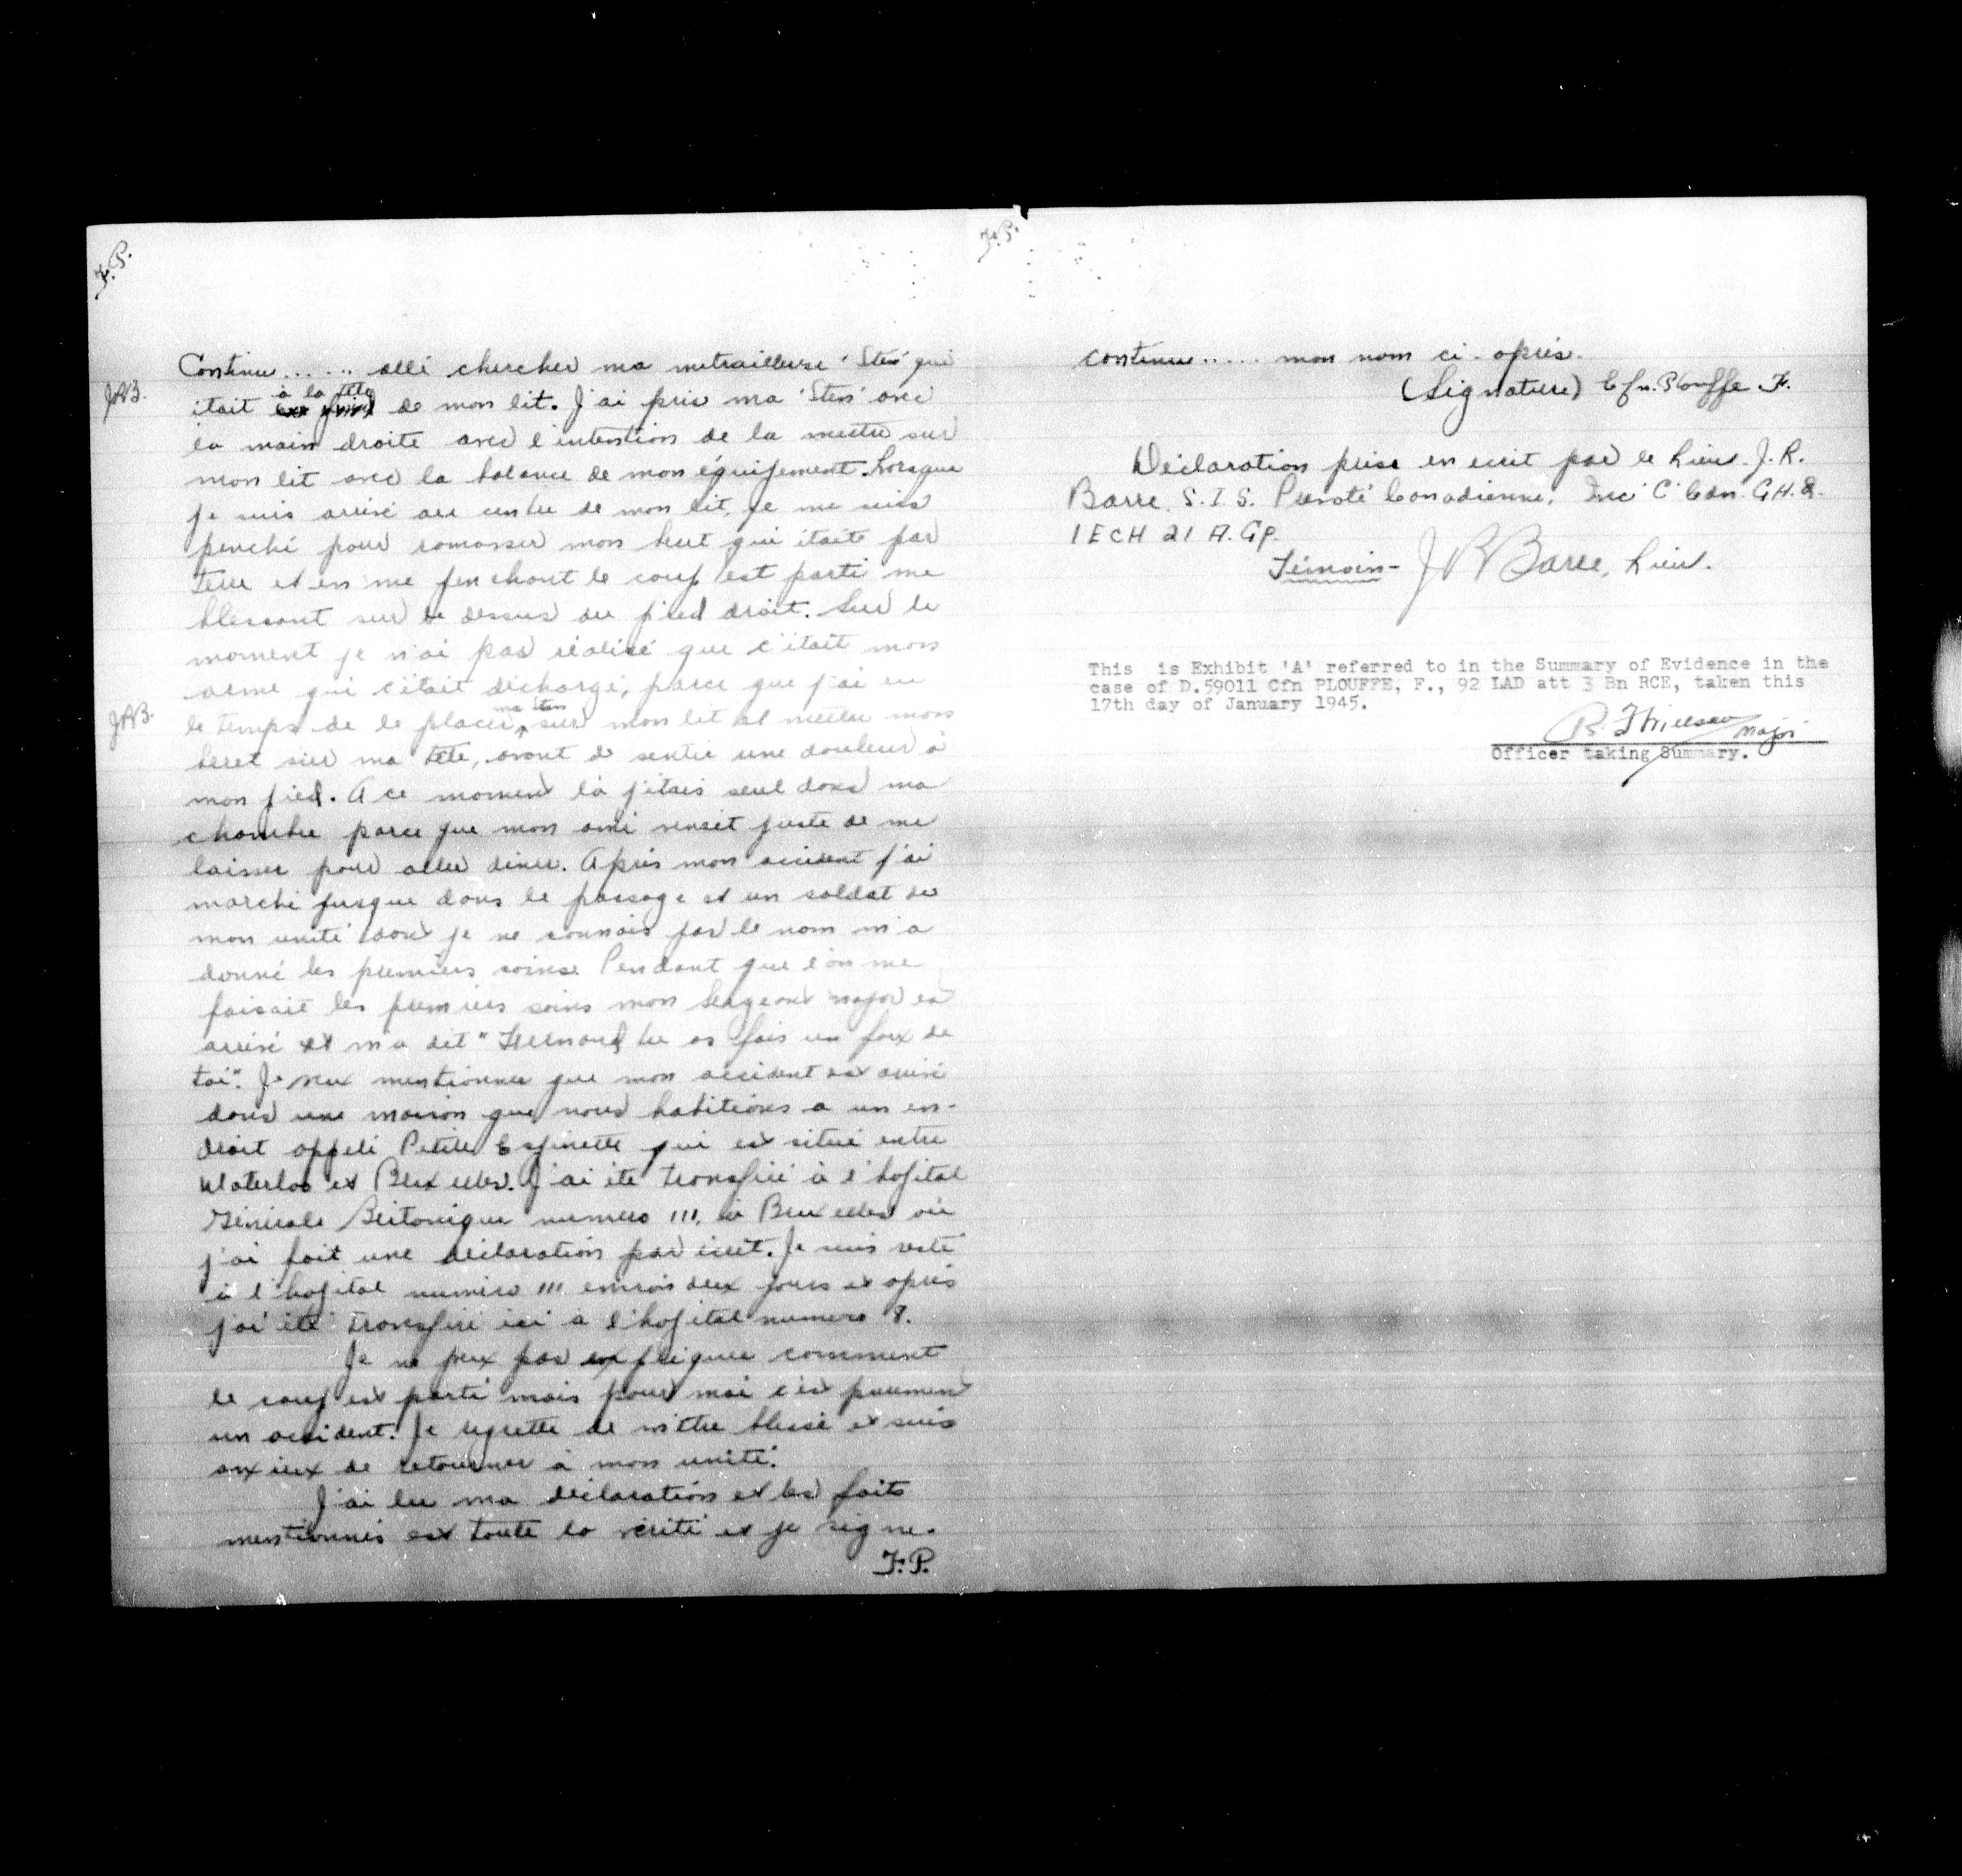 F.P.
Continue...... allé chercher ma metrailleuse 'Sten' qui
JRB.
à la tête
était de mon lit. J'ai pris ma 'Sten' avec
la main droite avec l'intention de la mettre sur
mon lit avec la balance de mon équipement. Lorsque
je suis arrivé au centre de mon lit, je me suis
penché pour ramasser mon beret qui était par
terre et en me penchant le coup est parti me
blessant sur le dessus du pied droit. Sur le
moment je n'ai pas réalisé que c'était mon
arme qui c'était déchargé, parce que j'ai eu
JRB.
ma Sten
le temps de le placer sur mon lit et mettre mon
beret sur ma tête, avant de sentir une douleur à
mon pied. A ce moment là j'étais seul dans ma
chambre parce que mon ami venait juste de me
laisser pour aller diner. Après mon accident j'ai
marché jusque dans le passage et un soldat de
mon unité dont je ne connais pas le nom m'a
donné les premiers soins. Pendant que l'on me
faisait les premiers soins mon Sergeant major est
arrivé et m'a dit " tu as fais un foux de
toi". Je veux mentionner que mon accident est arrivé
dans une maison que nous habitions a un en-
droit appelé Petite Espinette qui est situé entre
Waterloo et Bruxelles. J'ai été transféré à l'hopital
Génerale Britanique numero 111, à Bruxelles où
j'ai fait une déclaration par écrit. Je suis resté
à l'hopital numéro 111 environ deux jours et après
j'ai été transféré ici à l'hopital numero 8.
Je ne peux pas expliquer comment
le coup est parti mais pour moi c'est purement
un accident. Je regrette de m'être blessé et suis
anxieux de retourner à mon unité.
J'ai lu ma déclaration et les faits
mentionnés est toute la vérité et je signe.
F.P.
F.P.
continue..... mon nom ci-après.
(Signature) Cfn. Plouffe F.
Déclaration prise en écrit par le Lieut. J.R.
Barre, S.I.S. Prévoté Canadienne, 'C' Cdn. G.H. 8.
1 ECH 21 A. Gp.
Témoin- J R Barre, Lieut.
This is Exhibit 'A' referred to in the Summary of Evidence in the
case of D.59011 Cfn PLOUFFE, F., 92 LAD att 3 Bn RCE, taken this
17th day of January 1945.
Major
Officer taking Summary.